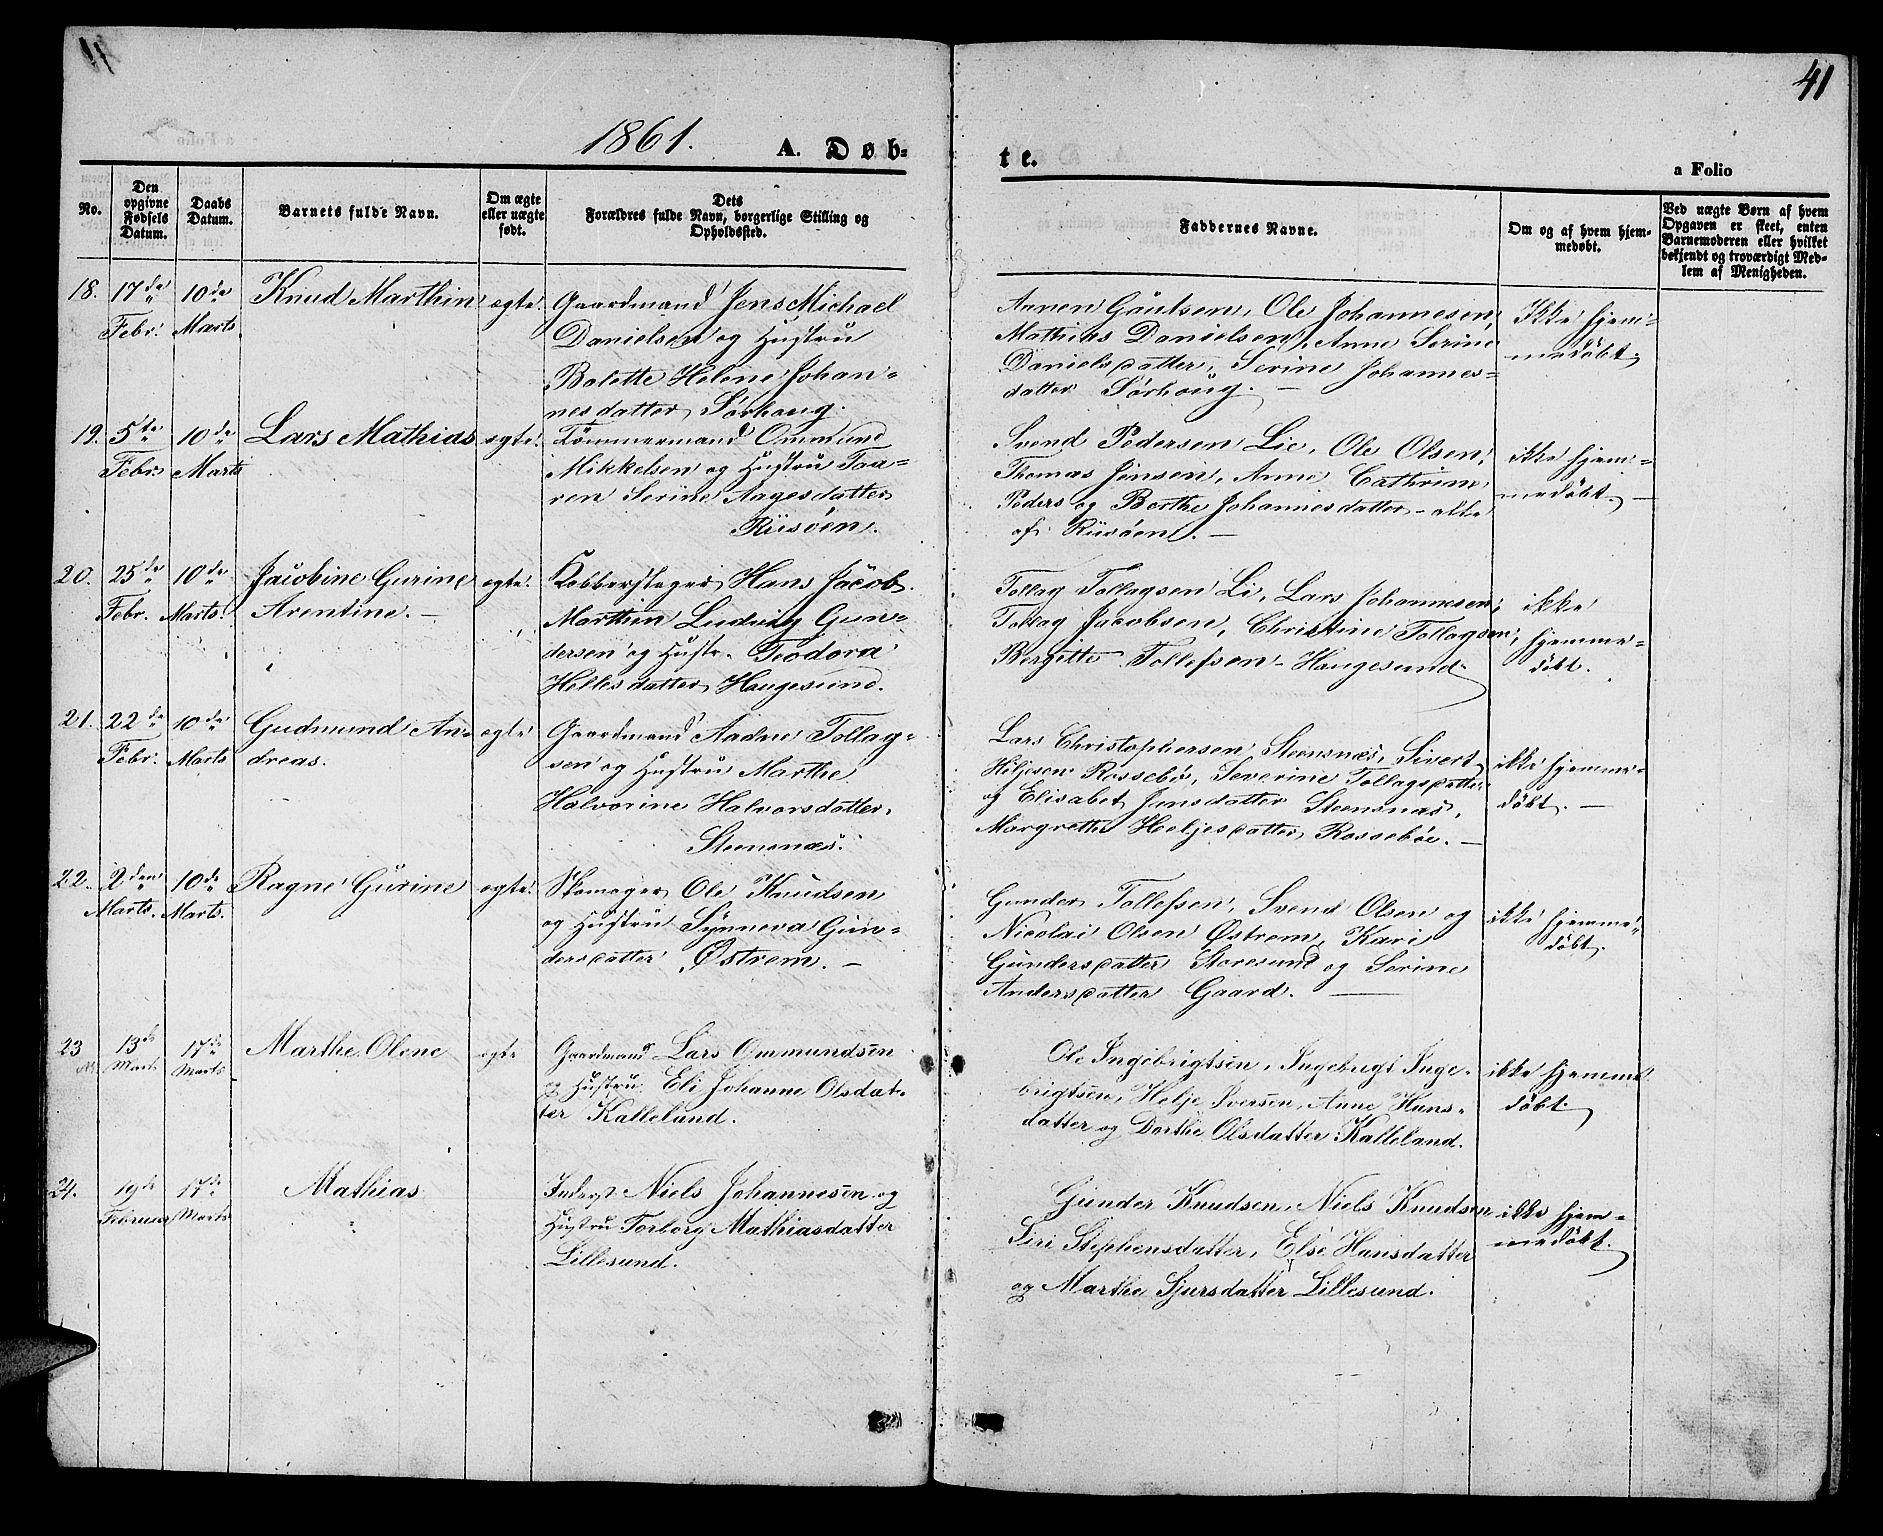 41
1861.
A. Døb-
te.
a Folio
No.
Den
opgivne
Fødsels
Datum.
Daabs
Datum.
Barnets fulde Navn.
Om ægte
eller uægte
født.
Dets
Forældres fulde Navn, borgerlige Stilling og
Opholdssted.
Faddernes Navne.
Om og af hvem hjem-
medøbt.
Ved uægte Børn af hvem
Opgaven er skeet, enten
Barnemoderen eller hvilket
bekjendt og troværdigt Med-
lem af Menigheden.
18. 17de Febr. 10de Marts Knud Marthin ægte.
Gaardmand Jens Michael
Danielsen og Hustru
Bolette Helene Johan-
nesdatter Sørhaug.
Annen Gautsen, Ole Johannesen,
Mathias Danielsen, Anne Serine
Danielsdatter, Serine Johannes-
datter Sørhoug. —
Ikke hjem-
medøbt.
19. 5te Febr. 10de Marts Lars Mathias ægte.
Tømmermand Ommund
Mikkelsen og Hustru Taa-
ren Serine Aagesdatter
Risøen.
Svend Pedersen Lie, Ole Olsen,
Thomas Jensen, Anne Cathrine
Peders og Berthe Johannesdatter - alle
af Risøen. —
ikke hjem-
medøbt. —
20. 25de Febr. 10de Marts. Jacobine Gurine
Arentine. — ægte.
Kobberslager Hans Jacob
Marthin Ludvig Gun-
dersen og Hustr. Teodora
Hellesdatter Haugesund.
Tollag Tollagsen Li, Lars Johannesen,
Tollag Jacobsen, Christine Tollagsen,
Bergitte Tollefsen - Haugesund
ikke
hjemme-
døbt.
21. 22de Febr. 10de Marts Gudmund An-
dreas. ægte
Gaardmand Aadne Tollag-
sen og Hustru Marthe
Halvorine Halvorsdatter,
Steensnæs.
Lars Christophersen Steensnæs, Sivert
Heljesen Rossebø, Severine Tollagsdatter
og Elisabet Jensdatter Steensnæs,
Margrethe Heljesdatter Rossebøe. —
ikke hjemme-
døbt. —
22. 2den Marts. 10de Marts. Ragne Gurine ægte.
Skomager Ole Knudsen
og Hustru Synneva Gun-
dersdatter Østrem. —
Gunder Tollefsen, Svend Olsen og
Nicolai Olsen Østrem, Kari
Gundersdatter Storesund og Serine
Andersdatter Gaard. —
ikke hjemme-
døbt.
23 13de Marts 17de Marts Marthe Olene ægte
Gaardmand Lars Ommundsen
og Hustru Eli Johanne Olsdat-
ter Kallelund.
Ole Ingebrigtsen, Ingebrigt Inge-
brigtsen, Helje Iversen, Anne Hans-
datter og Dorthe Olsdatter Kalleland.
ikke hjemme
døbt.
24. 19de Februar 17de Marts Mathias
Inderst Niels Johannesen og
Hustru Torborg Mathiasdatter
Lillesund.
Gunder Knudsen, Niels Knudsen
Siri Stephensdatter, Else Hansdatter
og Marthe Sjursdatter Lillesund.
ikke hjem-
medøbt.